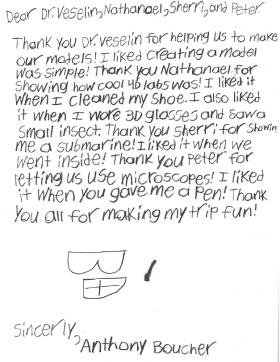 Dear Dr. Veselin, Nathanael, Sherri, and Peter
Thank you Dr. veselin for helping us to make
our models! I liked creating a model
was simple! Thank you Nathanael for
showing how cool 4D labs was! I liked it
when I cleaned my shoe. I also liked
it when I wore 3D glasses and saw a
small insect. Thank you sherri for showing
me a submarine! I liked it when we
went inside! Thank you Peter for
letting us use microscopes! I liked
it when you gave me a Pen! Thank
you all for making my trip fun!
Sincerly,
Anthony Boucher